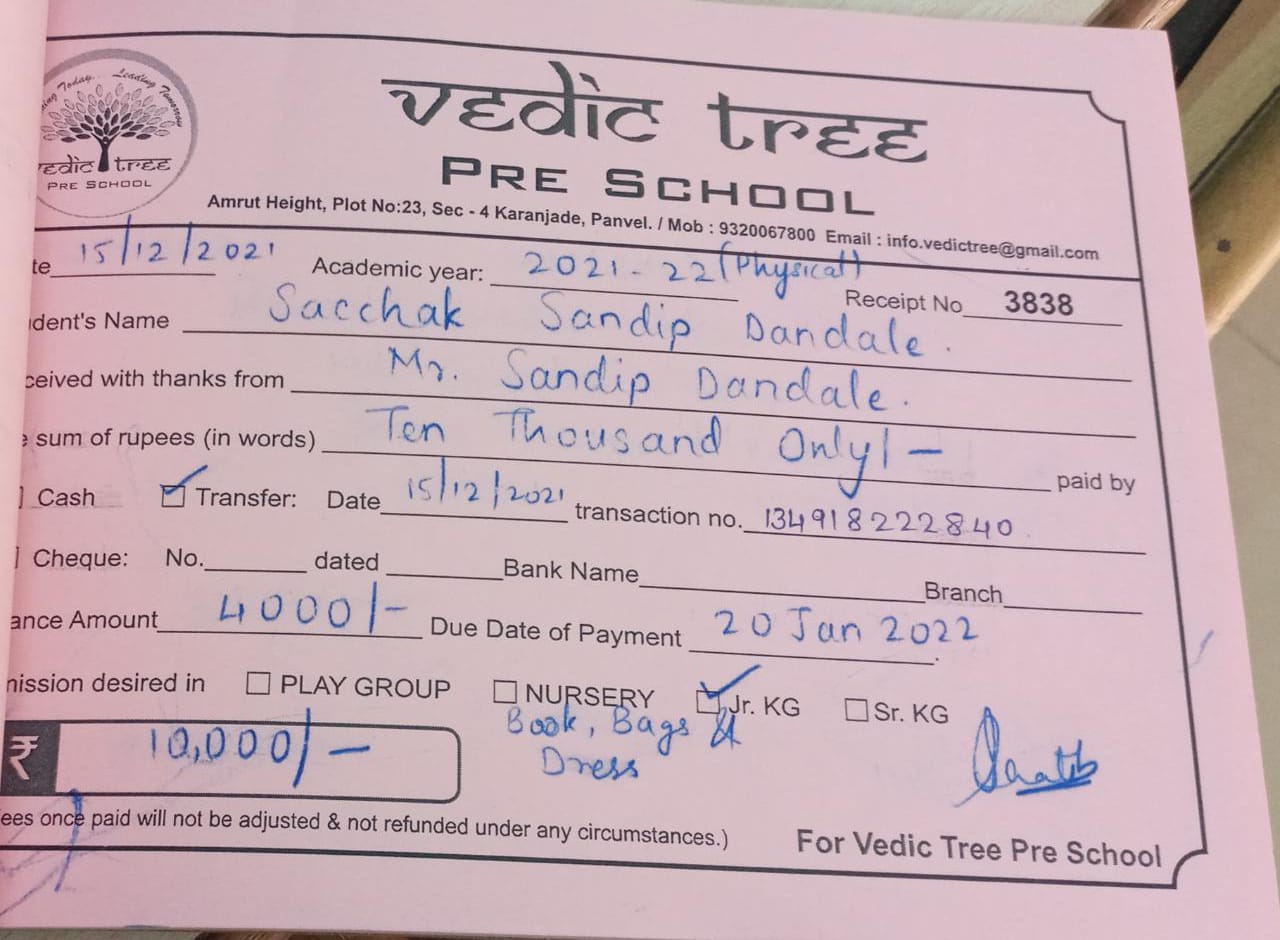 ing Today... Leading Tomorrow
vedic tree
PRE SCHOOL
vedic tree
PRE SCHOOL
Amrut Height, Plot No:23, Sec - 4 Karanjade, Panvel. / Mob : 9320067800 Email : info.vedictree@gmail.com
te 15/12/2021 Academic year: 2021-22 (Physical) Receipt No 3838
dent's Name Sacchak Sandip Dandale.
ceived with thanks from Mr. Sandip Dandale.
e sum of rupees (in words) Ten Thousand Only/- paid by
Cash Transfer: Date 15/12/2021 transaction no. 134918222840
Cheque: No. dated Bank Name Branch
ance Amount 4000/- Due Date of Payment 20 Jan 2022.
nission desired in PLAY GROUP NURSERY Jr. KG Sr. KG
Book, Bags &
Dress
₹ 10,000/-
ees once paid will not be adjusted & not refunded under any circumstances.)
For Vedic Tree Pre School